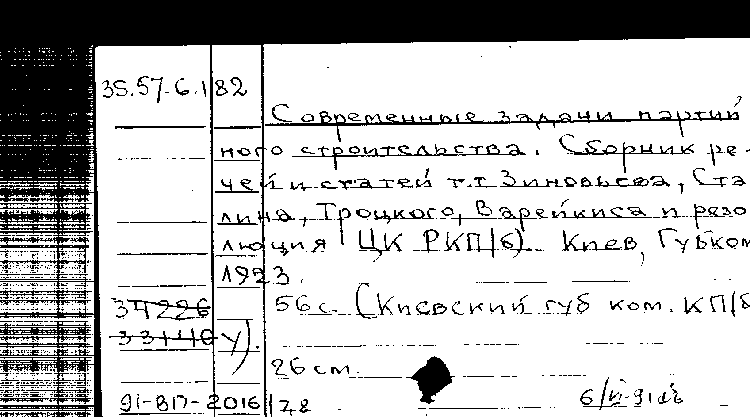 35.57.6.182
Современные задачи партий
ного строительства. Сборник ре-
чей и статей т.т. Зиновьева, Ста
лина, Троцкого, Варейкиса и резо
люция ЦК РКП(б). Киев, Губком
1923.
34226 56 с. (Киевский губ ком. КП(б
33440 У).
26 см.
91-ВП-2016 178 6/VI-91